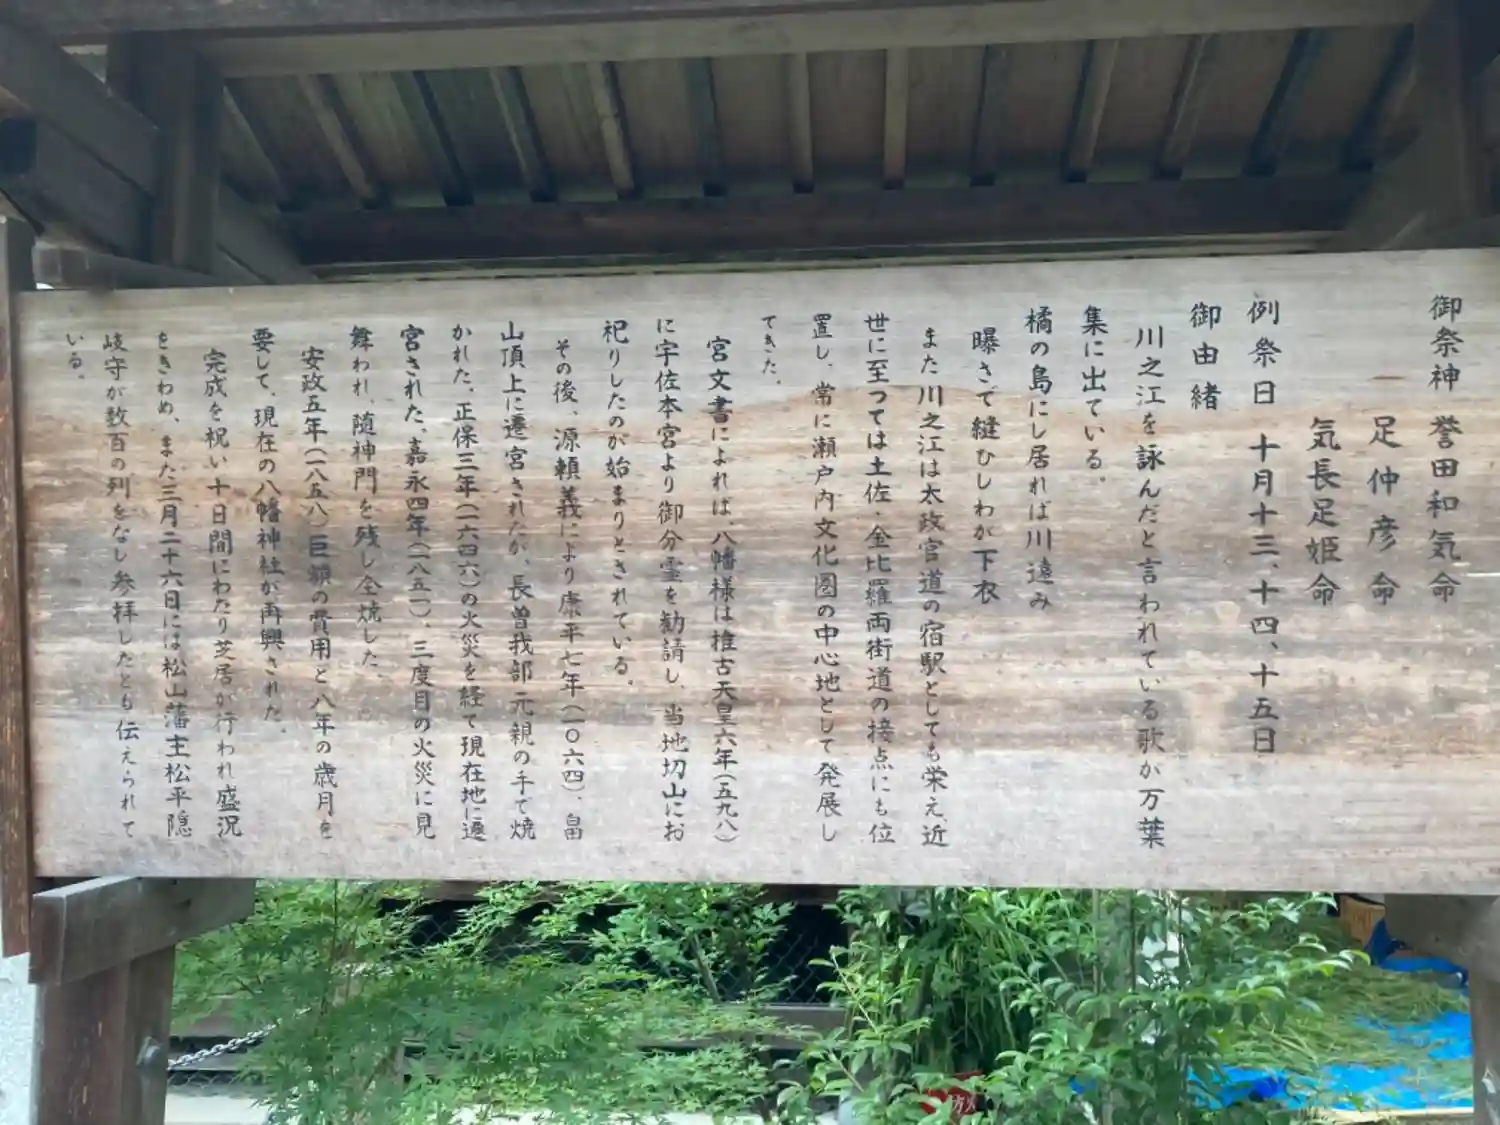 御祭神 誉田和気命
足仲彦命
気長足姫命
例祭日 十月十三、十四、十五日
御由緒
川之江を詠んだと言われている歌が万葉
集に出ている。
橘の島にし居れば川遠み
曝さで縫ひしわが下衣
また川之江は太政官道の宿駅としても栄え、近
世に至つては土佐・金比羅両街道の接点にも位
置し、常に瀬戸内文化圏の中心地として発展し
てきた。
宮文書によれば、八幡様は推古天皇六年(五九八)
に宇佐本宮より御分霊を勧請し、当地切山にお
祀りしたのが始まりとされている。
その後、源頼義により康平七年(一〇六四)、畠
山頂上に遷宮されたが、長曽我部元親の手で焼
かれた。正保三年(一六四六)の火災を経て現在地に遷
宮された。嘉永四年(一八五一)、三度目の火災に見
舞われ、随神門を残し全焼した。
安政五年(一八五八)巨額の費用と八年の歳月を
要して、現在の八幡神社が再興された。
完成を祝い十日間にわたり芝居が行われ盛況
をきわめ、また三月二十六日には松山藩主松平隠
岐守が数百の列をなし参拝したとも伝えられて
いる。
防火